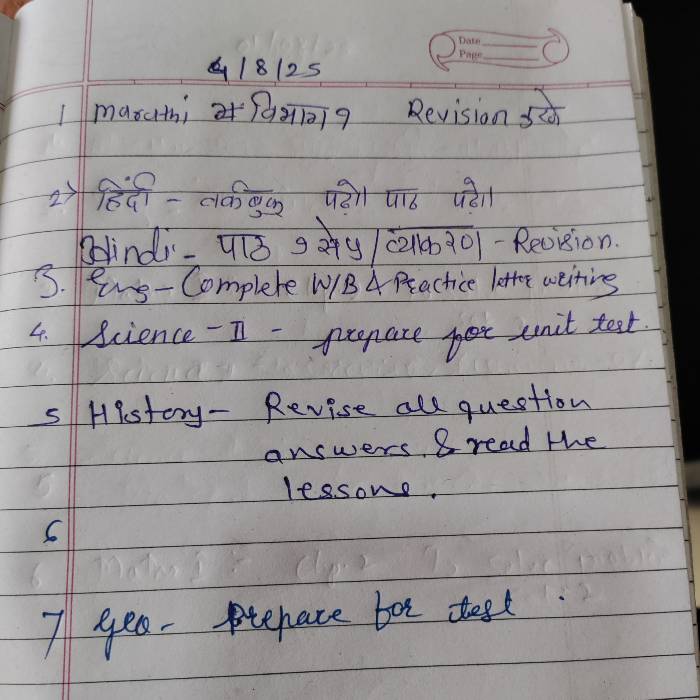 Date
Page
4/8/25
1 Marathi विभाग १ Revision करणे
2) हिंदी - वर्कबुक पढो।। पाठ पढो।।
Hindi - पाठ १ से ५ / व्याकरण - Revision.
3. Eng - Complete W/B & Practice letter writing
4. Science - II - prepare for unit test.
5 History - Revise all question
answers & read the
lessons.
6
7 Geo - Prepare for test.